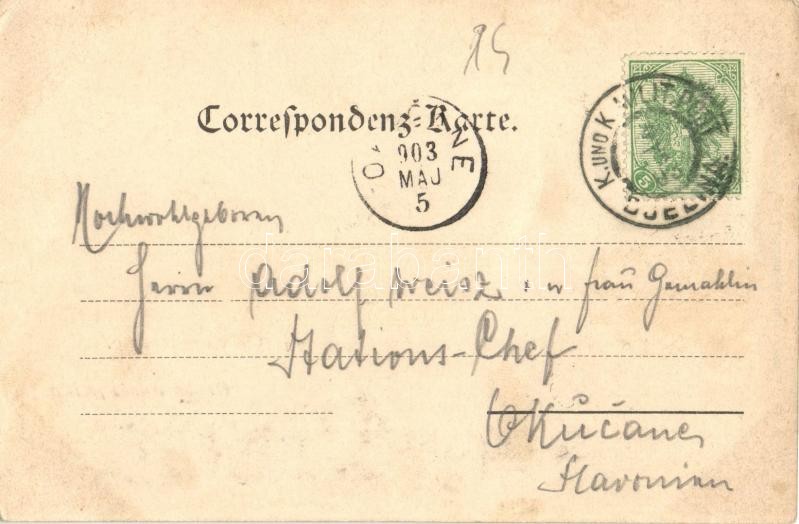 15
Correspondenz-Karte.
K. UND K. MILIT. POST
BJELINA
5
903
MAJ
5
Hochwohlgeboren
Herrn Adolf Weisz + u frau Gemahlin
Stations-Chef
Okučane
Slavonien
darabanth